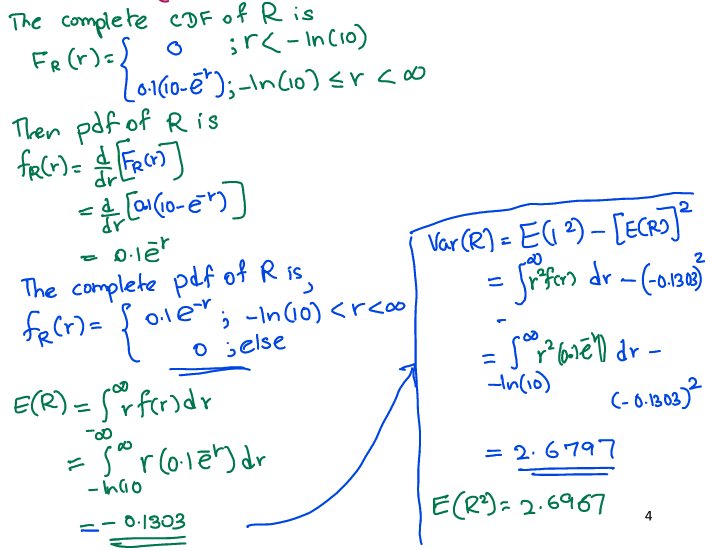 The complete CDF of R is
F_R(r) = { 0 ; r < - ln(10)
0.1(10-e^-r) ; -ln(10) ≤ r < ∞
Then pdf of R is
f_R(r) = d/dr [F_R(r)]
= d/dr [0.1(10-e^-r)]
= 0.1e^-r
The complete pdf of R is,
f_R(r) = { 0.1e^-r ; -ln(10) < r < ∞
0 ; else
E(R) = ∫_-∞^∞ r f(r) dr
= ∫_-ln(10^∞ r(0.1e^-r) dr
= - 0.1303
Var(R) = E( ²) - [E(R)]²
= ∫_-^∞ r²f(r) dr - (-0.1303)²
= ∫_-ln(10)^∞ r²(0.1e^-r) dr -
(-0.1303)²
= 2.6797
E(R²) = 2.6967
4